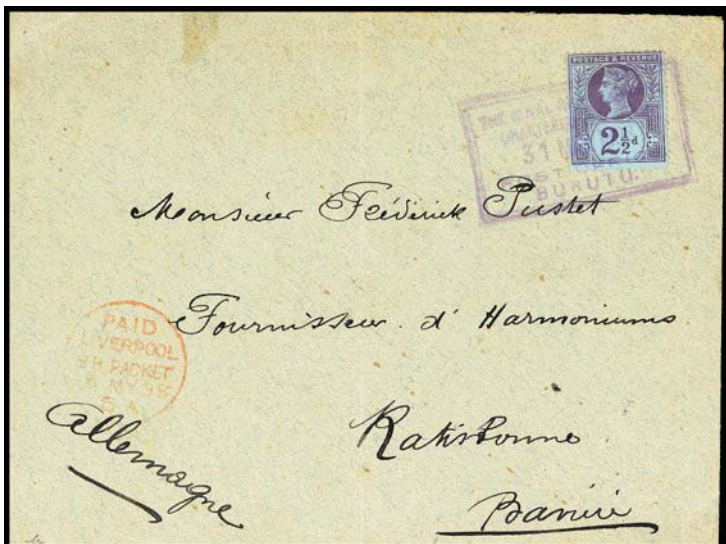 POSTAGE & REVENUE
2½d
THE
31
BURUTU.
Monsieur Fréderick Pustet
Fournisseur d' Harmoniums
PAID
LIVERPOOL
PACKET
Allemagne
Ratisbonne